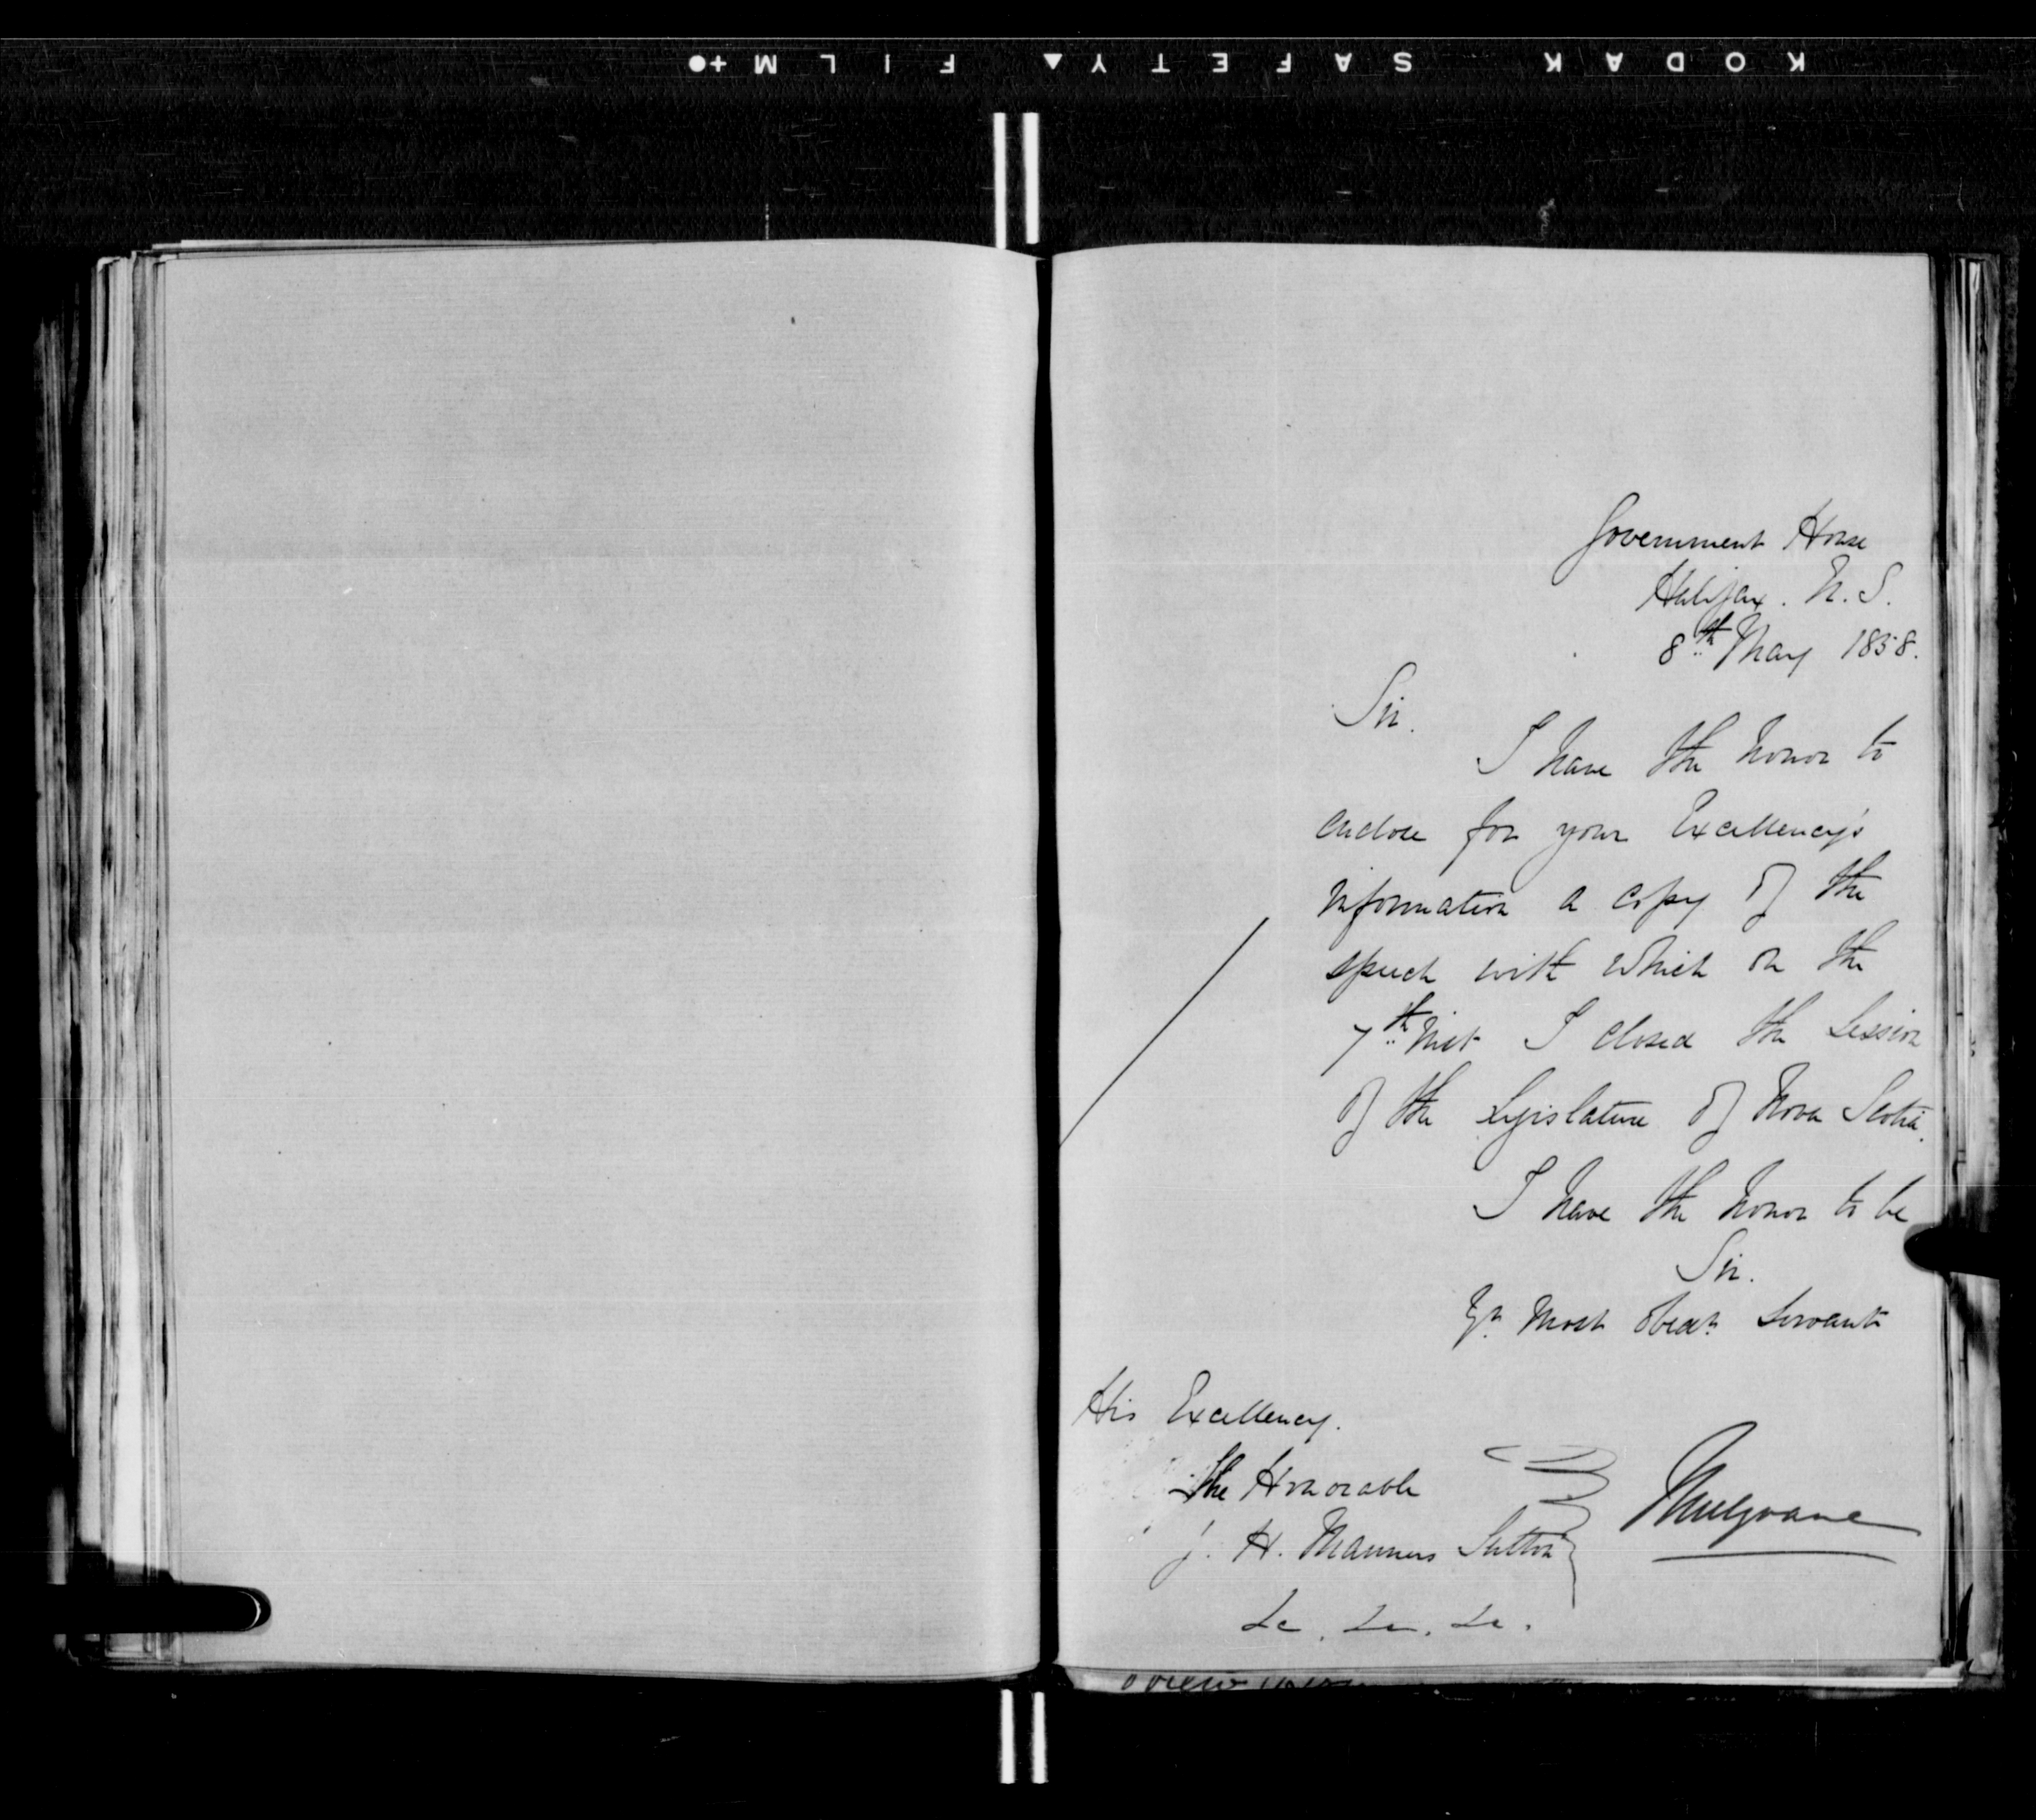 KODAK SAFETY▲ FILM+●
Government House
Halifax. N. S.
8th May 1858.
Sir.
I have the honor to
enclose for your Excellency's
information a copy of the
speech with which on the
7th Inst I closed the Session
of the Legislature of Nova Scotia.
I have the honor to be
Sir.
Yr. Most Obedt. Servant
Mulgrave
His Excellency.
The Honorable
J. H. Manners Sutton
&c. &c. &c.